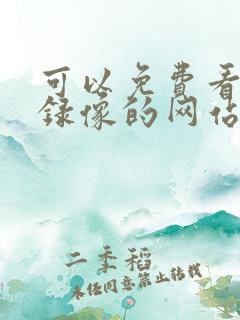 可以免费看
录像的网站
二季稻
未经同意禁止转载